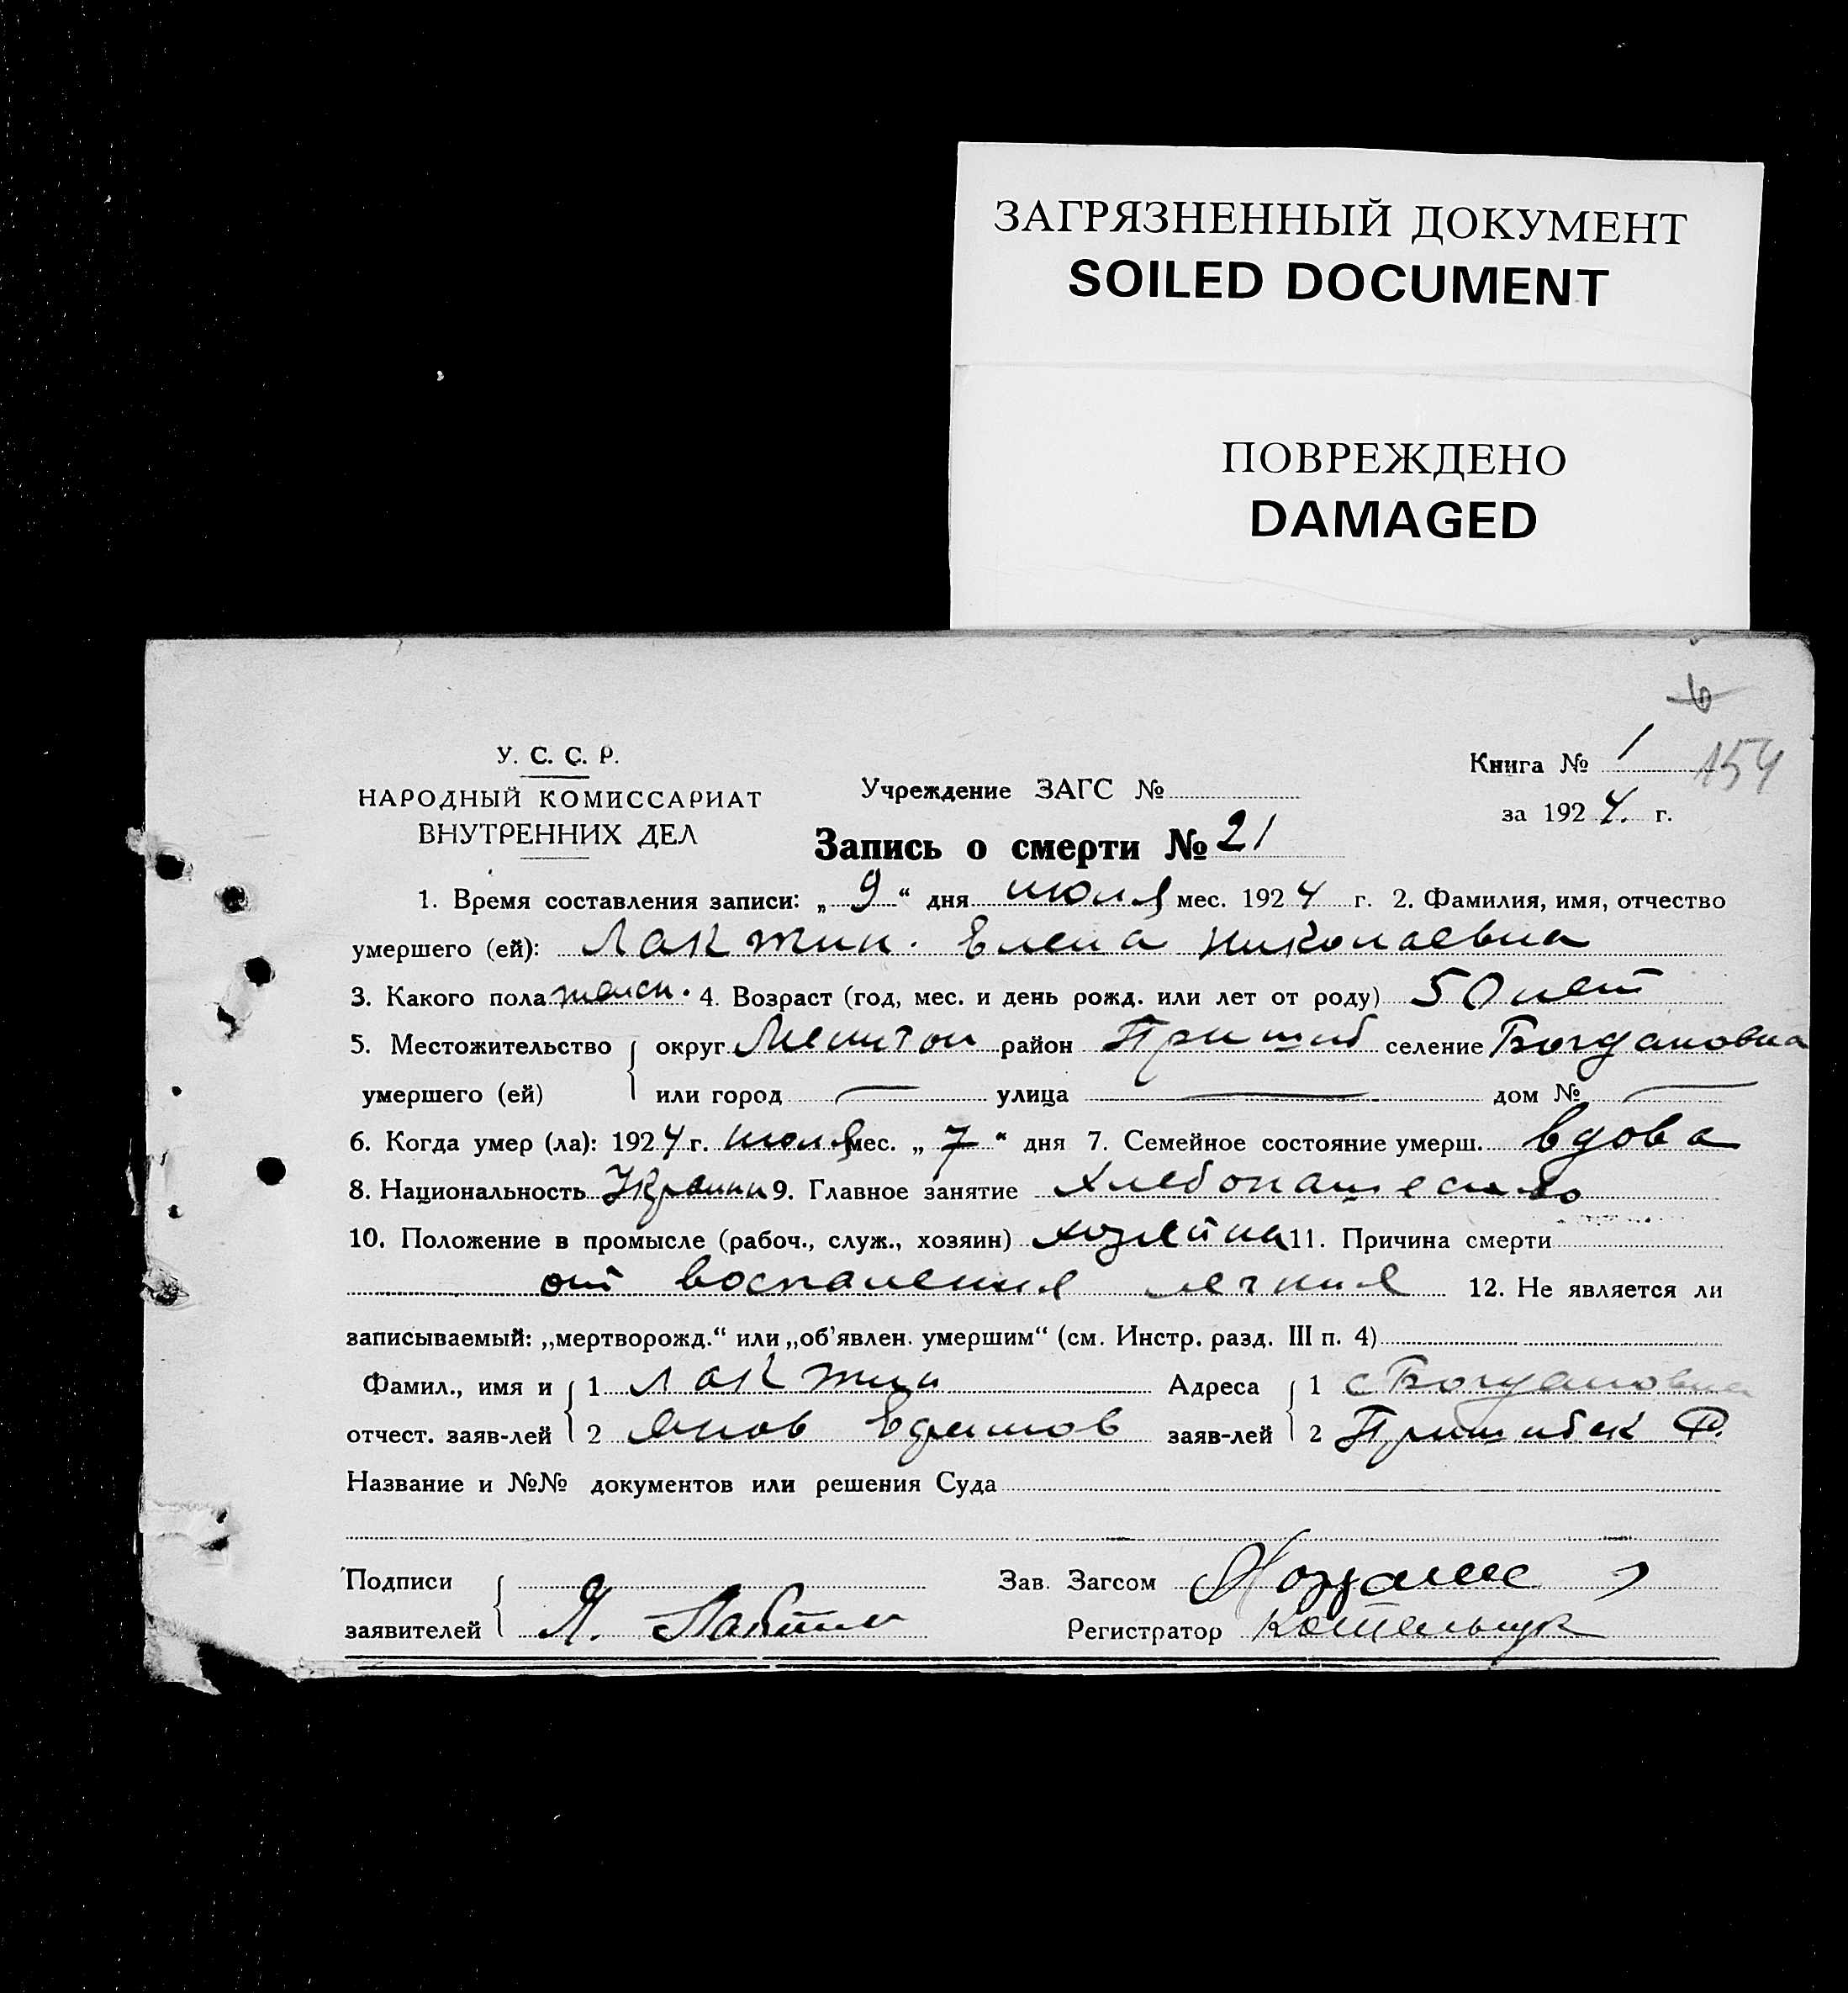 ЗАГРЯЗНЕННЫЙ ДОКУМЕНТ
SOILED DOCUMENT
ПОВРЕЖДЕНО
DAMAGED
У. С. С. Р.
НАРОДНЫЙ КОМИССАРИАТ
ВНУТРЕННИХ ДЕЛ
Учреждение ЗАГС №
Книга № 1
154
за 1924 г.
Запись о смерти № 21
1. Время составления записи: „ 9 “ дня июля мес. 1924 г. 2. Фамилия, имя, отчество
умершего (ей): Лактин. Елена Николаевна
3. Какого пола женск. 4. Возраст (год, мес. и день рожд. или лет от роду) 50 лет
5. Местожительство округ Мелитоп район Пришиб селение Богдановка
умершего (ей) или город — улица — дом № —
6. Когда умер (ла): 1924 г. июля мес. „ 7 “ дня 7. Семейное состояние умерш. вдова
8. Национальность Украинк 9. Главное занятие хлебопашество
10. Положение в промысле (рабоч., служ., хозяин) хозяйка 11. Причина смерти
от воспаления легкия 12. Не является ли
записываемый: „мертворожд.“ или „об’явлен. умершим“ (см. Инстр. разд. III п. 4)
Фамил., имя и 1 Лактин Адреса 1 с Богдановка
отчест. заяв-лей 2 Яков Ефимов заяв-лей 2 Пришибск Р.
Название и №№ документов или решения Суда
Подписи Зав. Загсом
заявителей Я. Лактин Регистратор Котельчук